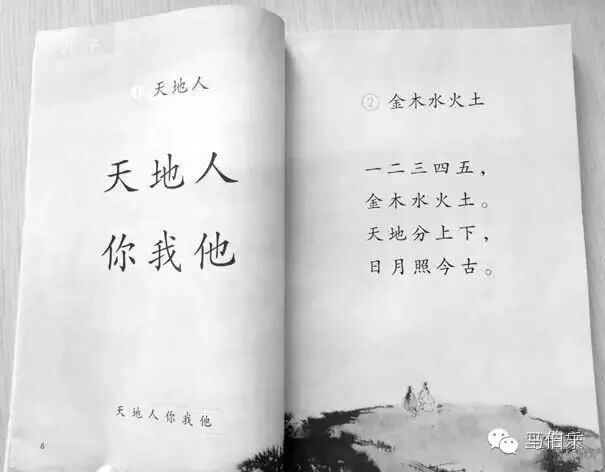 识字
1 天地人
天地人
你我他
天地人你我他
6
2 金木水火土
一二三四五，
金木水火土。
天地分上下，
日月照今古。